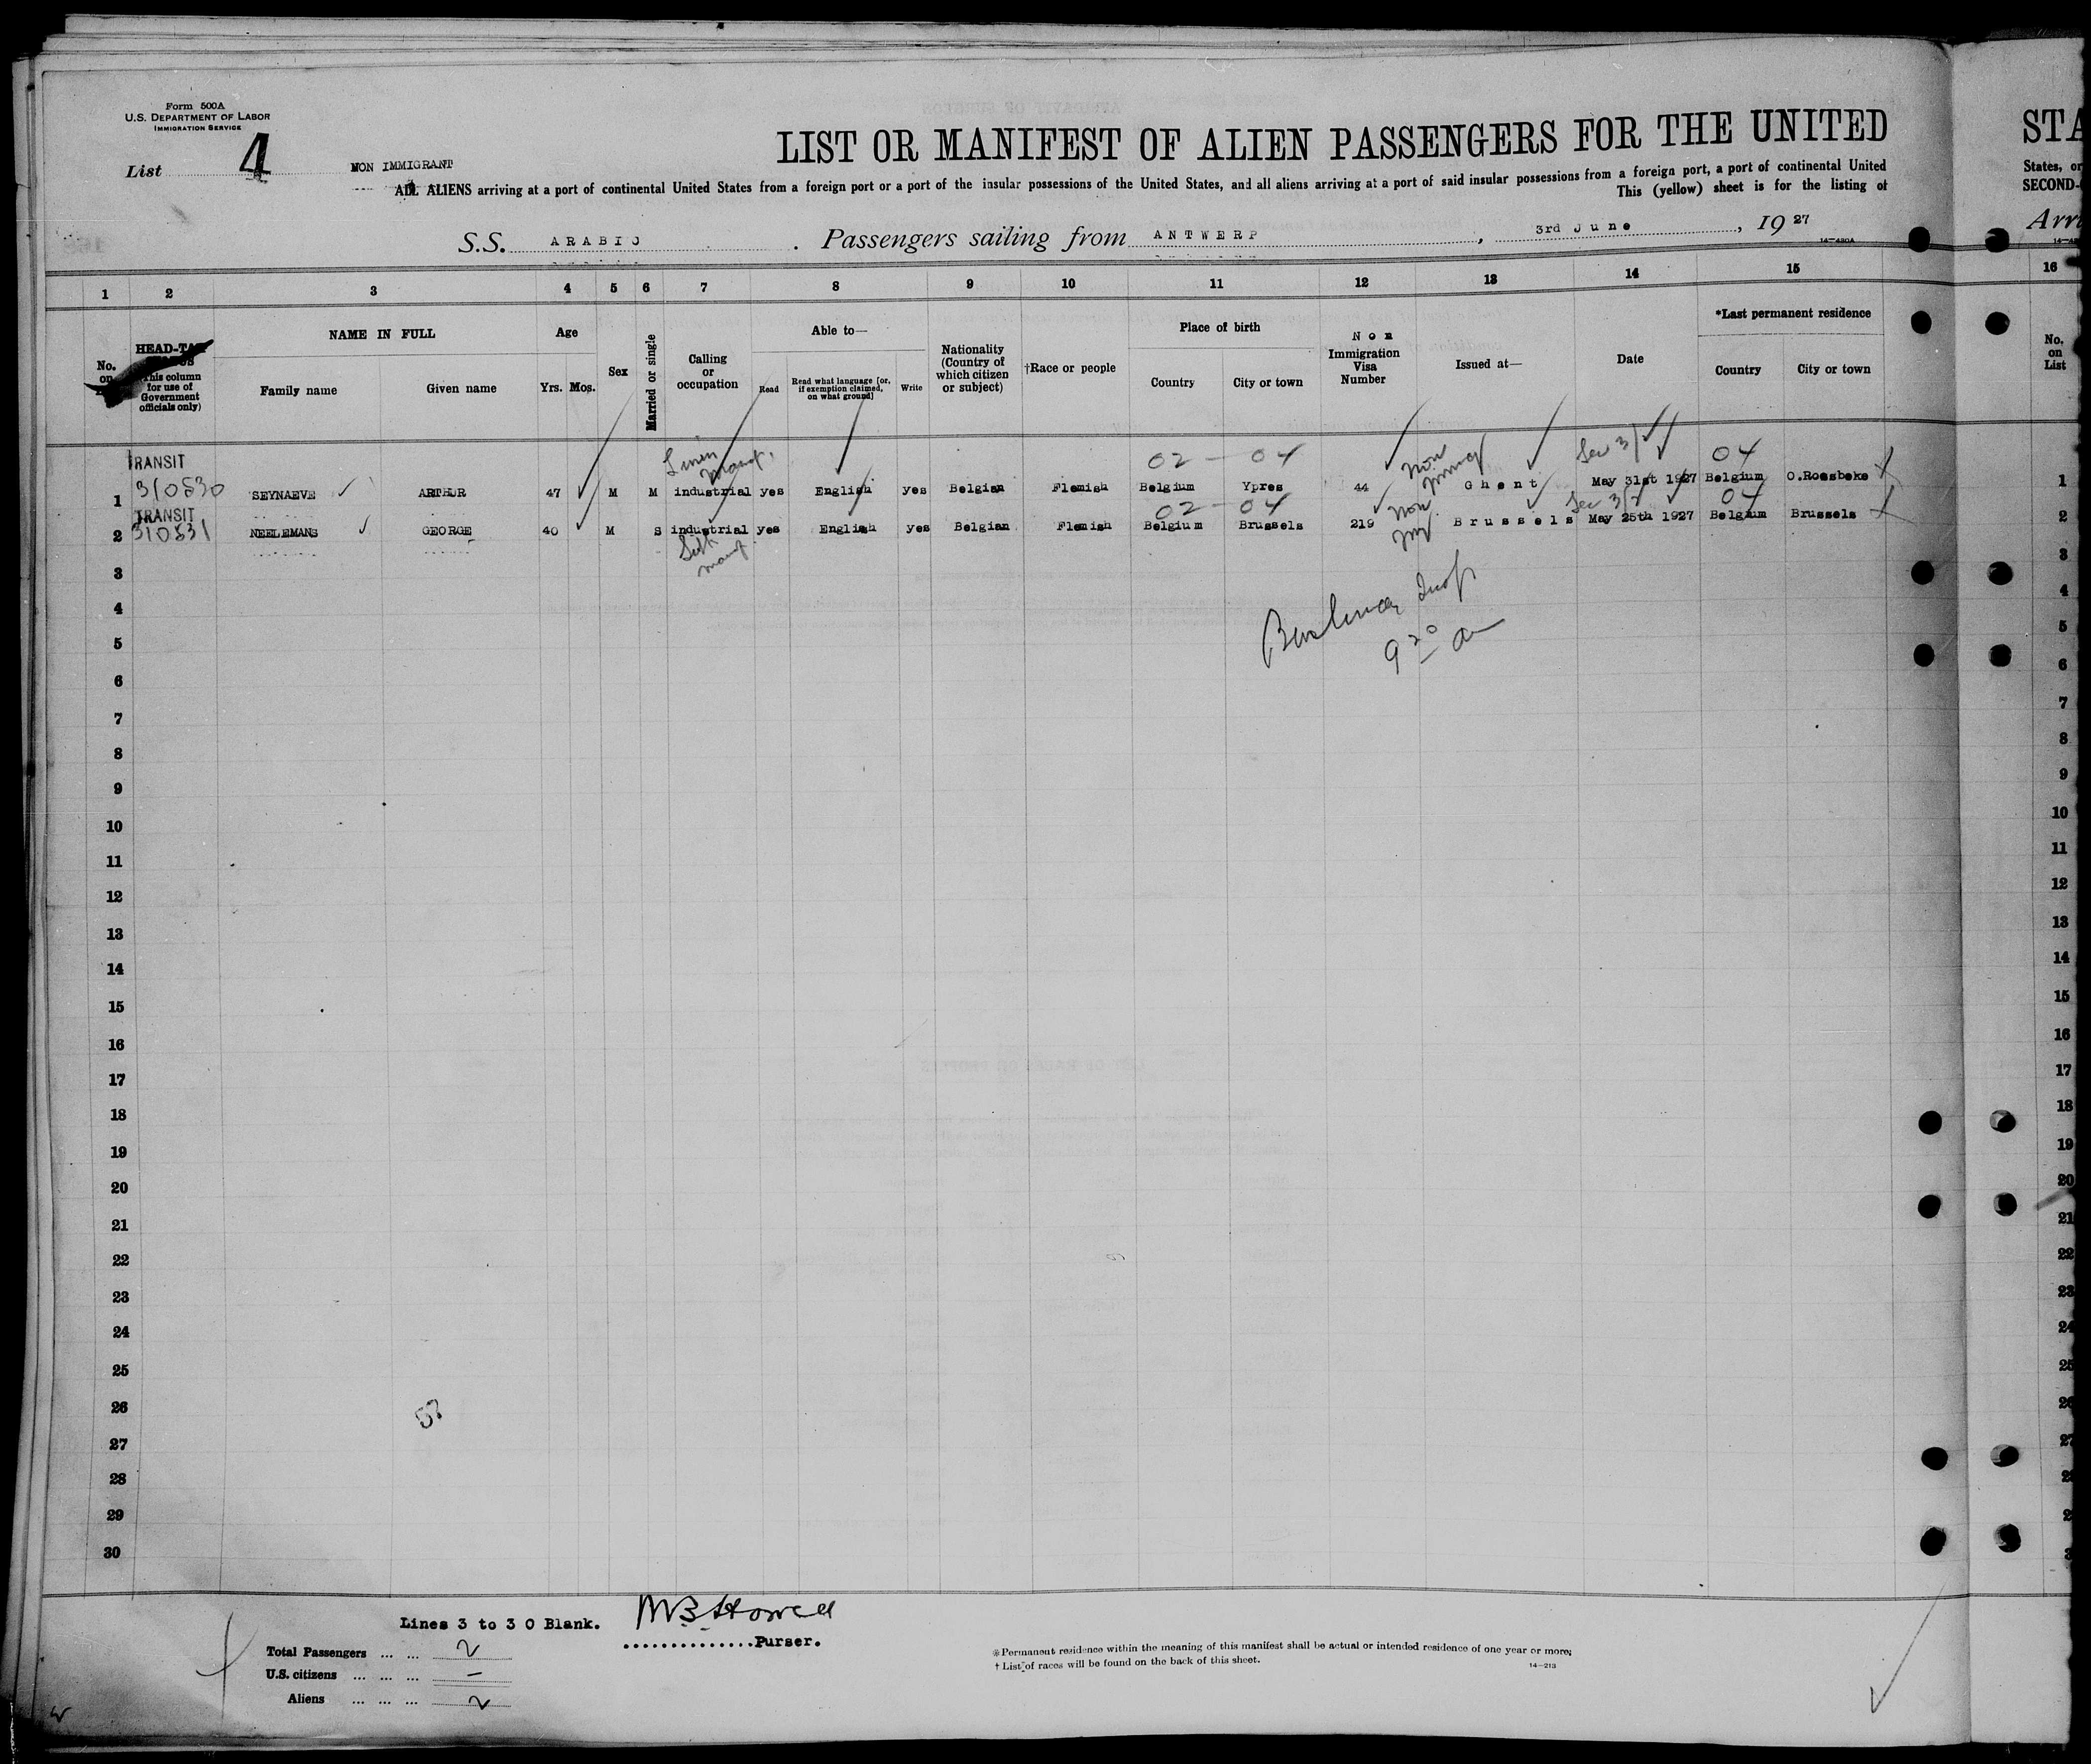 Form 500A
U.S. DEPARTMENT OF LABOR
IMMIGRATION SERVICE
List 4
NON IMMIGRANT
LIST OR MANIFEST OF ALIEN PASSENGERS FOR THE UNITED
ALL ALIENS arriving at a port of continental United States from a foreign port or a port of the insular possessions of the United States, and all aliens arriving at a port of said insular possessions from a foreign port, a port of continental United
This (yellow) sheet is for the listing of
S.S. ARABIC. Passengers sailing from ANTWERP, 3rd June, 1927
14-430A
STA
States, or
SECOND-
Arri
1 2 3 4 5 6 7 8 9 10 11 12 13 14 15 16
No. on
HEAD-TAX
(This column for use of Government officials only)
NAME IN FULL
Family name Given name
Age
Yrs. Mos.
Sex
Married or single
Calling or occupation
Able to—
Read
Read what language [or, if exemption claimed, on what ground]
Write
Nationality (Country of which citizen or subject)
†Race or people
Place of birth
Country City or town
Non Immigration Visa Number
Issued at—
Date
*Last permanent residence
Country City or town
No. on List
TRANSIT Linen manf. 02 - 04 Non Immig Sec 3/ 04
1 310530 SEYNAEVE ARTHUR 47 M M industrial yes English yes Belgian Flemish Belgium Ypres 44 Ghent May 31st 1927 Belgium O.Roesbeke 1
TRANSIT 02 - 04 Non Sec 3/ 04
2 310531 NEELEMANS GEORGE 40 M S industrial yes English yes Belgian Flemish Belgium Brussels 219 Brussels May 25th 1927 Belgium Brussels 2
Silk manf
3 3
4 4
5 5
9 20 a
6 6
7 7
8 8
9 9
10 10
11 11
12 12
13 13
14 14
15 15
16 16
17 17
18 18
19 19
20 20
21 21
22 22
23 23
24 24
25 25
26 26
27 27
28 2
29 2
30 3
Lines 3 to 30 Blank.
..............Purser.
Total Passengers ... ... 2
U.S. citizens ... ... ... —
Aliens ... ... ... 2
*Permanent residence within the meaning of this manifest shall be actual or intended residence of one year or more;
† List of races will be found on the back of this sheet.
14-213